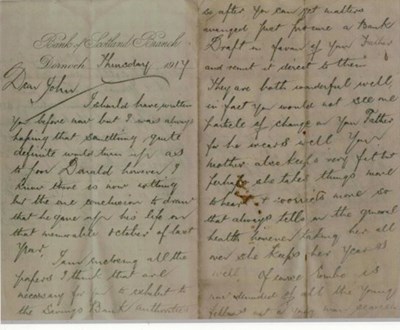 Bank of Scotland Branch
Dornoch, Thursday 1917
Dear John
I should have written
you before now but I was always
hoping that something quite
definite would turn up as
to poor Donald however I
know there is now nothing
but the one conclusion to draw
that he gave up his life on
that memorable October of last
Year.
I am enclosing all the
papers I think that are
necessary for to exhibit to
the Savings Bank authorities
so after you can get matters
arranged just procure a Bank
Draft in favour of your Father
and remit it direct to them
They are both wonderful well,
in fact you would not see one
particle of change on your Father
for he wears well. Your
mother also keeps very fat but
perhaps she takes things more
to heart & worries more so
that always tells on the general
health however taking her all
over she keeps her years
well. Of course Embo is
one denuded of all the young
fellows